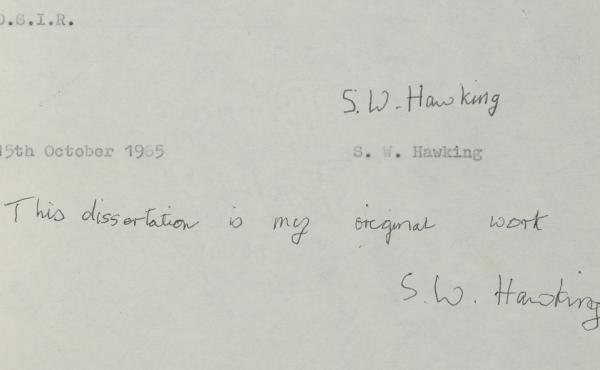 D.S.I.R.
S.W. Hawking
15th October 1965
S. W. Hawking
This dissertation is my original work
S.W. Hawking